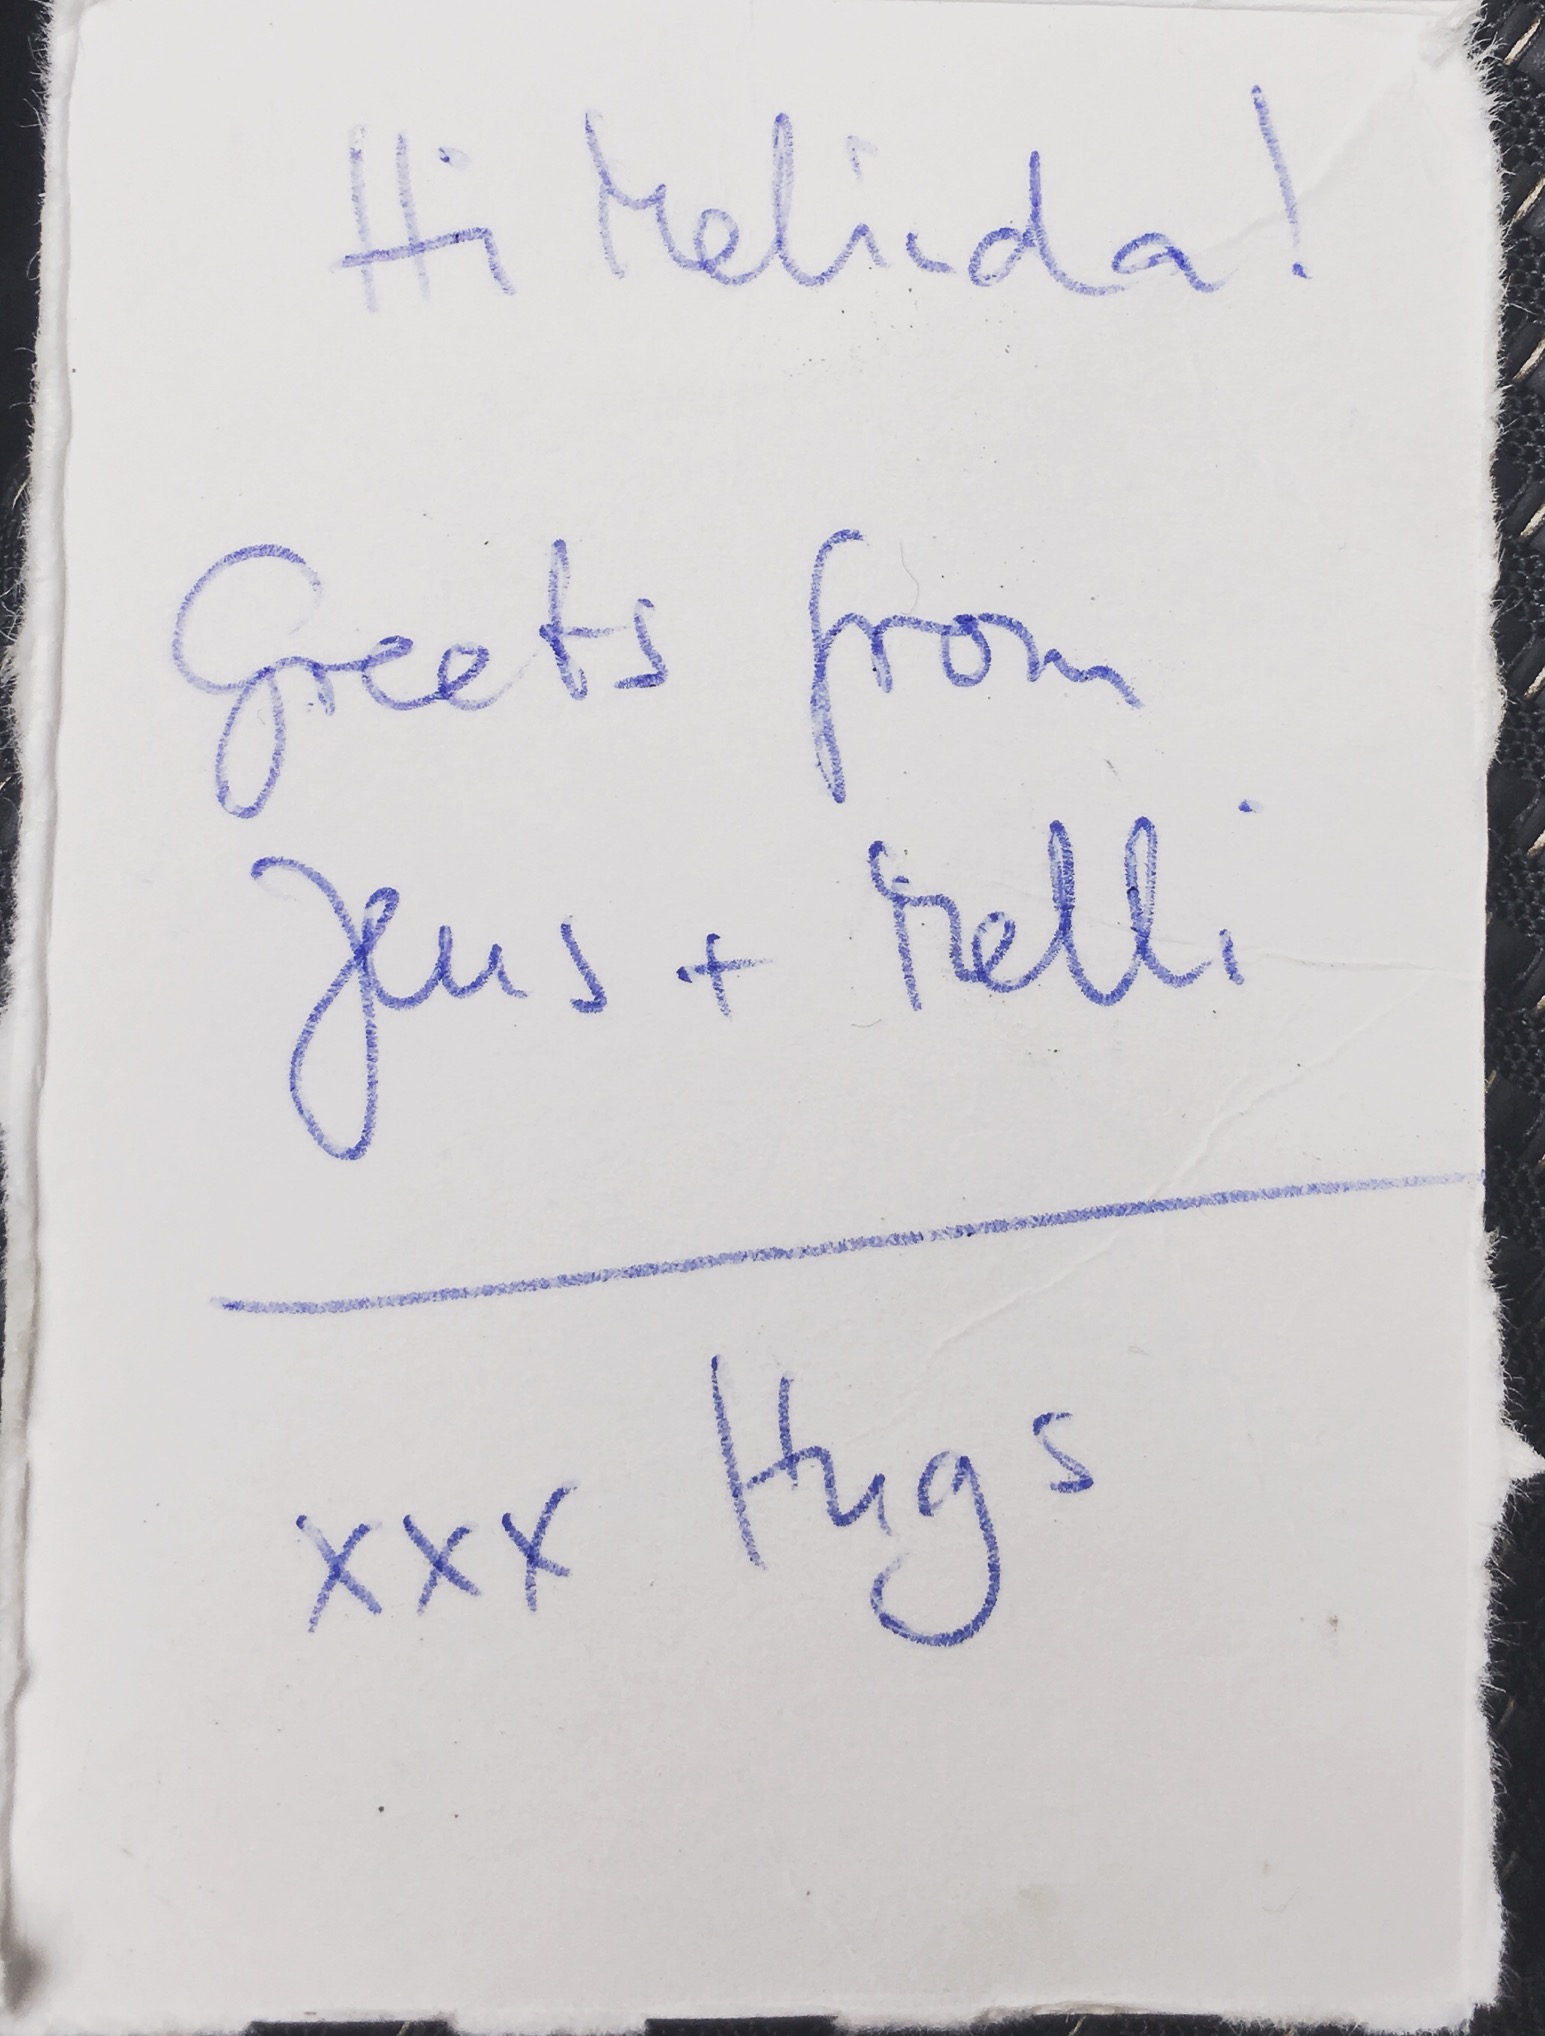 Hi Melinda!
Greets from
Jens + Melli
xxx Hugs